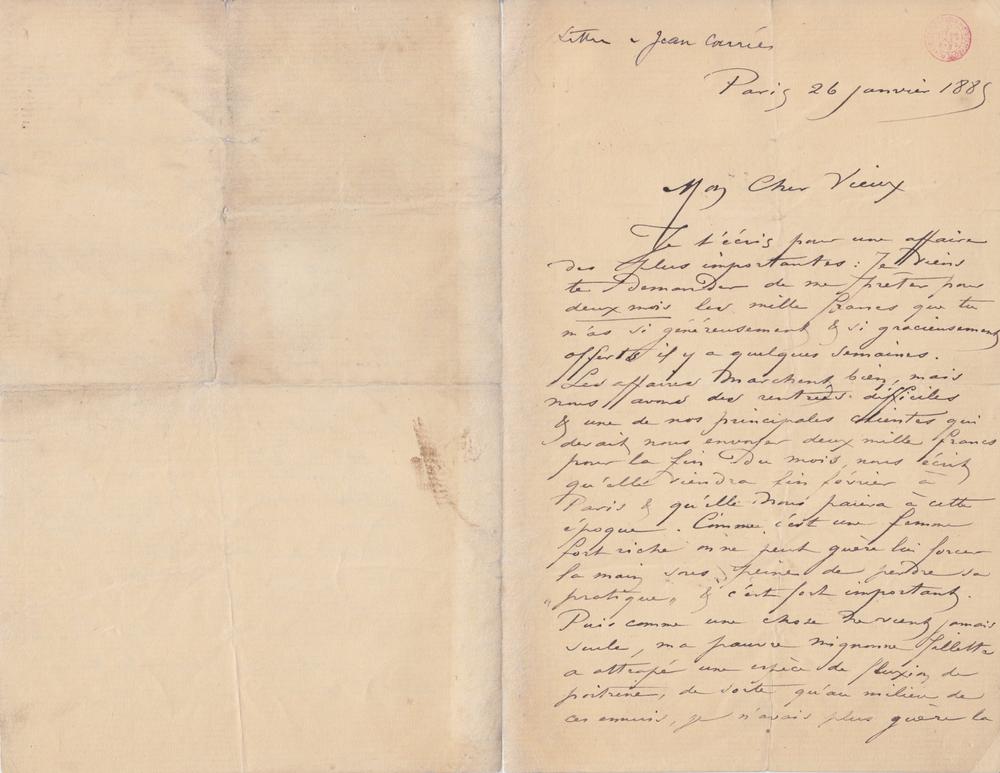 Lettre a Jean Carriés
Paris 26 janvier 1885
Mon Cher Vieux
Je t'écris pour une affaire
des plus importantes : Je viens
te demander de me prêter pour
deux mois les mille francs que tu
m'as si généreusement & si gracieusement
offerts il y a quelques semaines.
Les affaires marchent bien, mais
nous avons des rentrées difficiles
& une de nos principales clientes qui
devait nous envoyer deux mille francs
pour la fin du mois, nous écrit
qu'elle viendra fin février à
Paris & qu'elle nous paiera à cette
époque. Comme c'est une femme
fort riche on ne peut guère lui forcer
la main sous peine de perdre sa
"pratique" & c'est fort important.
Puis comme une chose ne vient jamais
seule, ma pauvre mignonne fillette
a attrapé une espèce de fluxion de
poitrine, de sorte qu'au milieu de
ces ennuis, je n'avais plus guère la